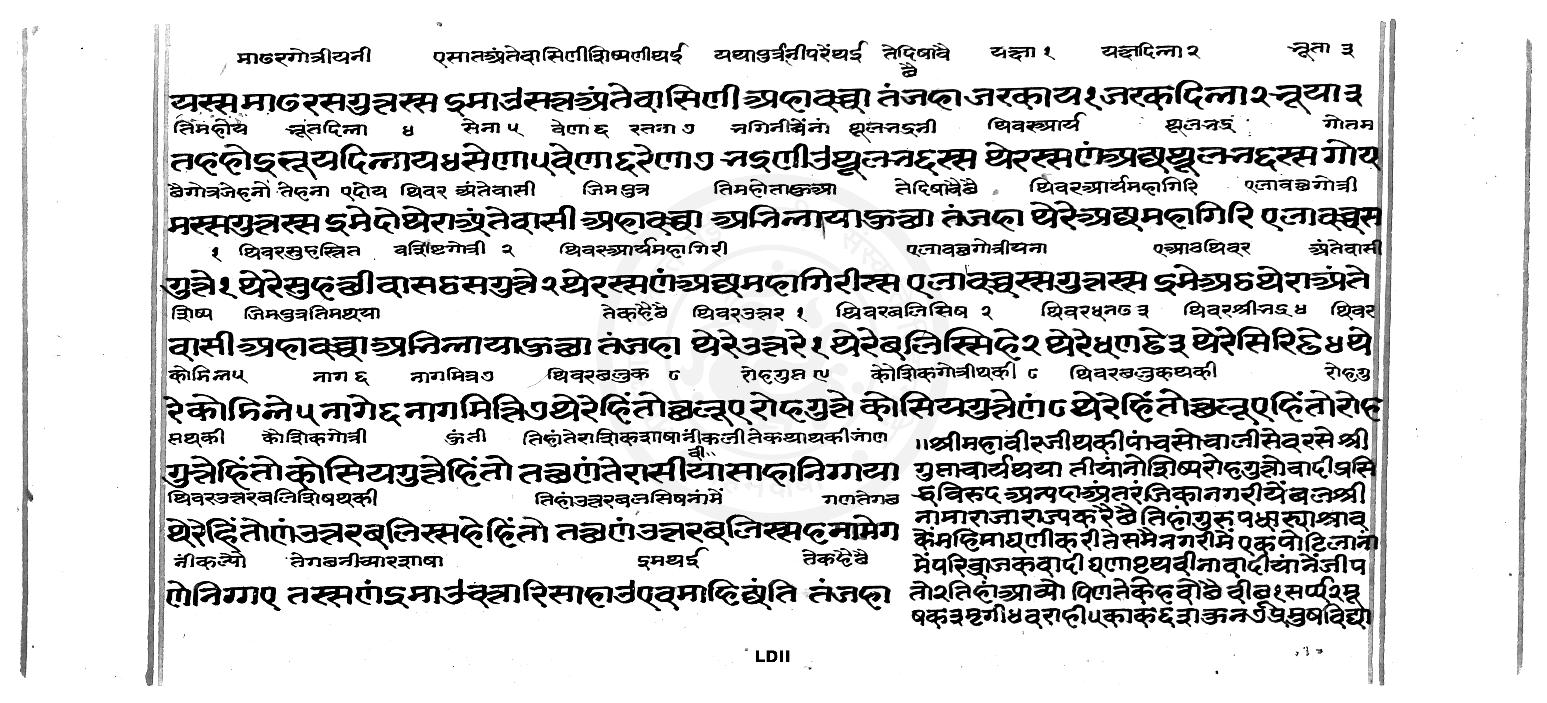 माढरगोत्रीयनी एसातअंतेवासिणीशिष्यणीथई यथापुत्रनीपरेंथई तेदिषावै छै यक्षा १ यक्षदिन्ना २ भूता ३
यस्स माढरसगुत्तस्स इमाउसत्तअंतेवासिणीअहावच्चा तंजहा जरकाय१जरकदिन्ना२भूया३
तिमहीय भूतदिन्ना ४ सेना ५ वेणा ६ रतना ७ भगिनीयेंनां थूलभद्रनी थिवरआर्य थूलभद्र गोतम
तहहोइभूयदिन्नाय४सेणा५वेणा६रेणा७ भइणीउथूलभद्दस्स थेरस्सणंअद्यथूलभद्दस्स गोय
छैगोत्रजेहनों तेहना एदोय थिवर अंतेवासी जिमपुत्र तिमहोताऊआ तेदिषावैछै थिवरआर्यमहागिरि एलावछगोत्री
मस्सगुत्तस्स इमेदोथेराअंतेवासी अहावच्चा अभिन्नायाऊछा तंजहा थेरेअद्यमहागिरि एलावच्चस
१ थिवरसुहस्तित वशिष्टगोत्री २ थिवरआर्यमहागिरी एलावछगोत्रीयना एआठथिवर अंतेवासी
गुत्ते१ थेरेसुहछीवासठसगुत्ते२थेरस्सणंअद्यमहागिरीस्स एलावच्चस्सगुत्तस्स इमेअठथेराअंते
शिष्य जिमपुत्रतिमथया तेकहैछै थिवरउत्तर १ थिवरबलिसिष २ थिवरधनढ ३ थिवरश्रीभद्र ४ थिवर
वासीअहावच्चाअभिन्नायाऊछा तंजहा थेरेउत्तरे१थेरेबलिस्सिहे२ थेरेधणढे३ थेरेसिरिढे४थे
कोमिन्न५ नाग ६ नागमित्र७ थिवरबलुक ८ रोहगुप्त ९ कोशिकगोत्रीथकीं ८ थिवरबलुकथकी रोहगु
रेकोमिन्ने५ नागे६नागमित्ते७थेरेहिंतोछलूएरोहगुत्ते कोसियगुत्तेणं८ थेरेहिंतोछलूएहिंतोरोह
सथकी कौशिकगोत्री ऊंती तिहांतेराशिकशाषानींकलीतेकथाथकीजांण
गुत्तेहिंतोकोसियगुत्तेहिंतो तछणंतेरासीयासाहानिग्गया
थिवरउत्तरबलिशिषथकी तिहांउत्तरबलसिषनांमें गणतेगछ
थेरेहिंतोणंउत्तरबलिस्सहेहिंतो तछणंउत्तरबलिस्सहनामेग
नींकल्पो तेगछनीच्यारशाषा इमथई तेकहैछै
णेनिग्गए तस्सणंइमाउचत्तारिसाहाउएवमाहिद्यंति तंजहा
॥श्रीमहावीरजीथकीपांचसोचालीसेवरसेश्री
गुप्ताचार्यथया तीयांनोशिष्यरोहगुत्तोवादीप्रसि
द्धबिरुदअन्यदाअंतरंजिकानगरीयेंबलश्री
नामाराजाराज्यकरैछैतिहांगुरुपधास्याश्राव
केंमहिमाघणीकरीतेसमैनगरीमेंएकपोटिलानां
मेंपरिव्राजकवादीघणाश्थवीनावादीयांनेंजीप
तोरतिहांआव्यौ पिणतेकेहवौछै वीछू१सर्प्प२मू
षक३मृगी४वराही५काक६शऊन७प्रमुषविद्यो
LDII